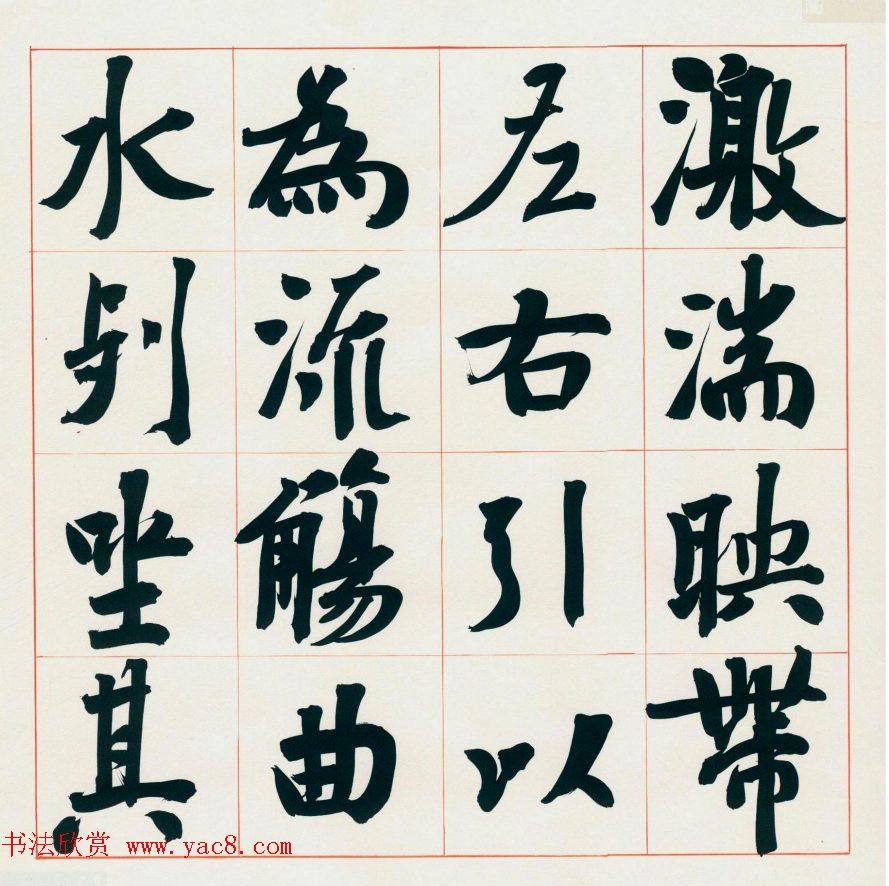 激湍映帶
左右引以
為流觴曲
水列坐其
书法欣赏 www.yac8.com